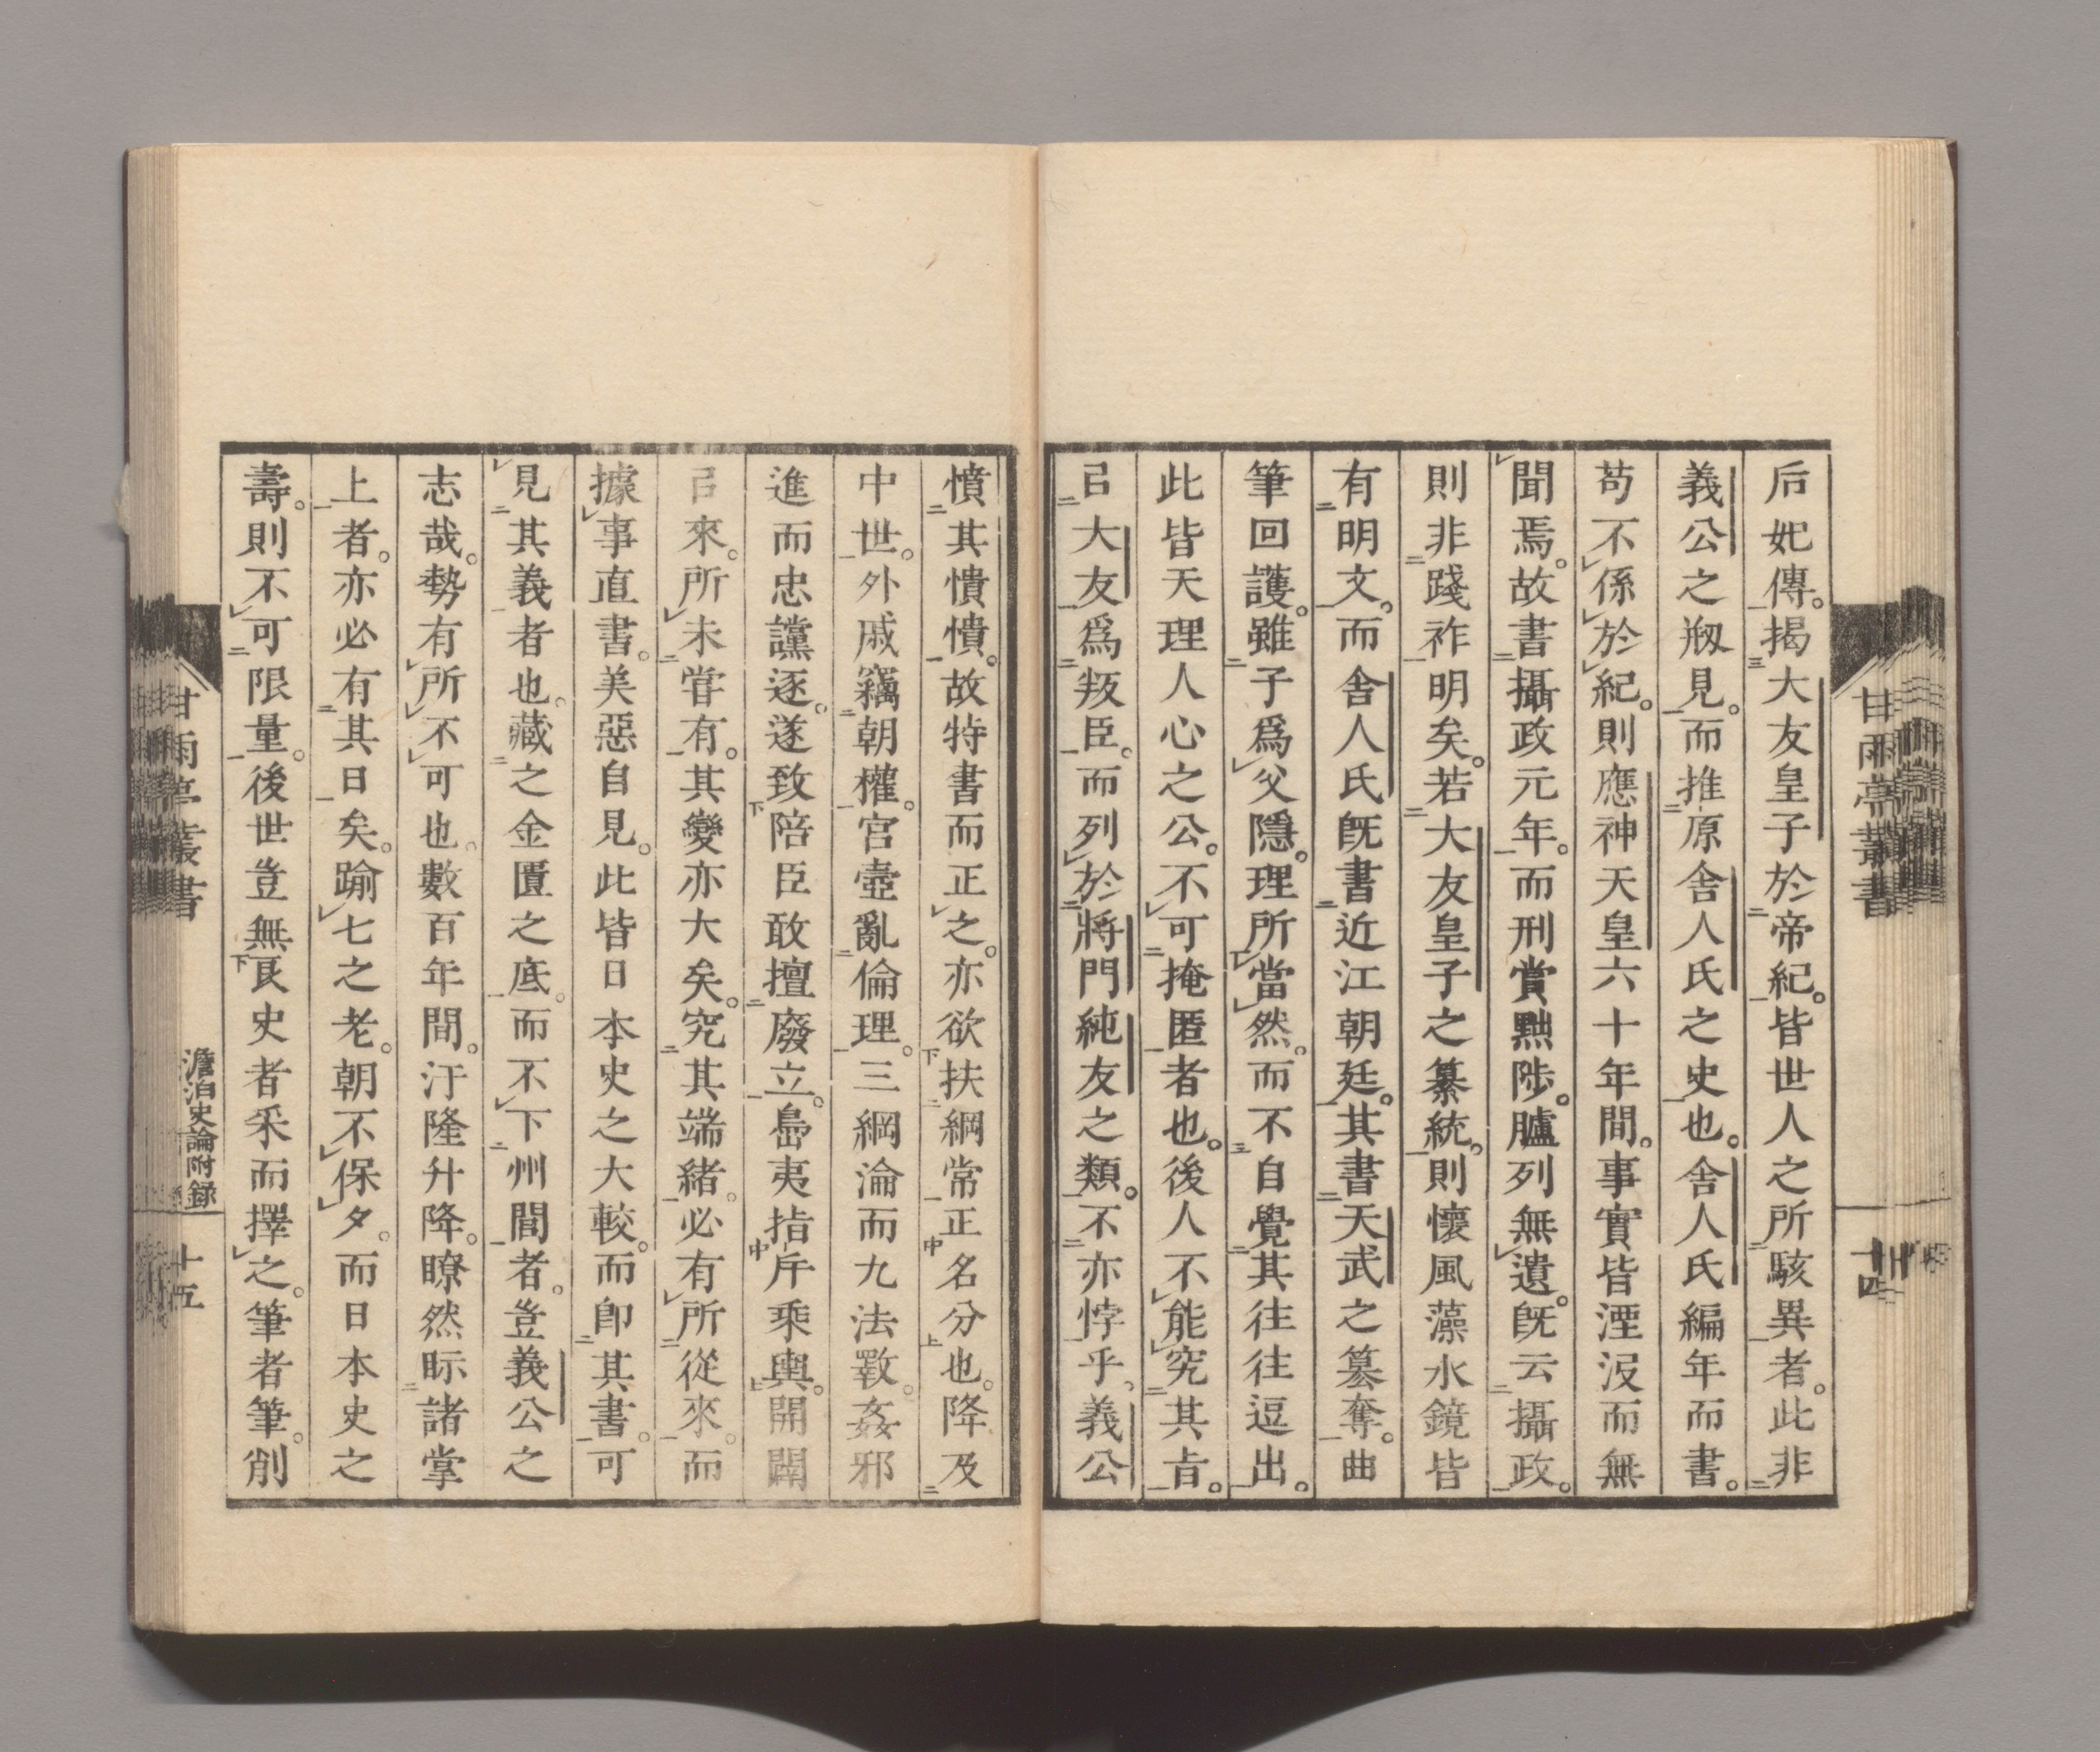 后妃傳。揭大友皇子於帝紀。皆世人之所駭異者。此非
義公之剏見。而推原舍人氏之史也。舍人氏編年而書。
苟不係於紀。則應神天皇六十年間。事實皆湮沒而無
聞焉。故書攝政元年。而刑賞黜陟。臚列無遺。旣云攝政。
則非踐祚明矣。若大友皇子之纂統。則懷風藻水鏡皆
有明文。而舍人氏旣書近江朝廷。其書天武之簒奪。曲
筆回護。雖子爲父隱。理所當然。而不自覺其往往逗出。
此皆天理人心之公。不可掩匿者也。後人不能究其旨。
㠯大友爲叛臣。而列於將門純友之類。不亦悖乎。義公
甘雨亭叢書
十四
憤其憒憒。故特書而正之。亦欲扶綱常正名分也。降及
中世。外戚竊朝權。宮壼亂倫理。三綱淪而九法斁。姦邪
進而忠讜逐。遂致陪臣敢擅廢立。島夷指斥乘輿。開闢
㠯來。所未甞有。其變亦大矣。究其端緒。必有所從來。而
據事直書。美惡自見。此皆日本史之大較。而卽其書。可
見其義者也。藏之金匱之底。而不下州閭者。豈義公之
志哉。勢有所不可也。數百年間。汙隆升降。瞭然眎諸掌
上者。亦必有其日矣。踰七之老。朝不保夕。而日本史之
壽。則不可限量。後世豈無良史者釆而擇之。筆者筆。削
甘雨亭叢書
澹泊史論附錄
十五